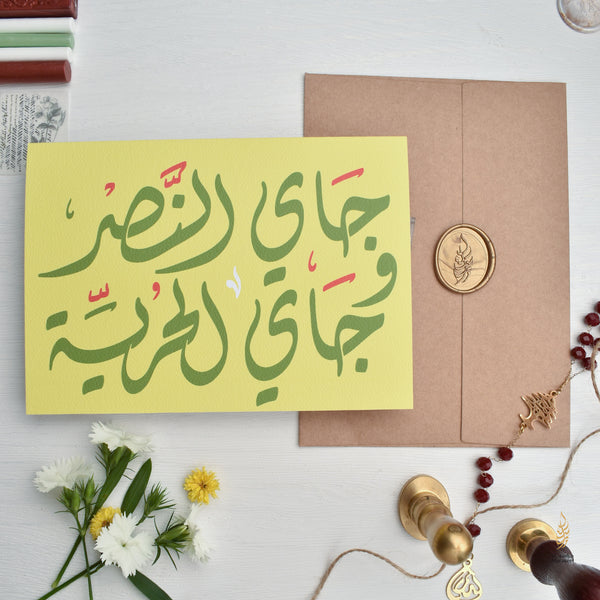 جَاي النَّصْر
وجَاي الحُريّة